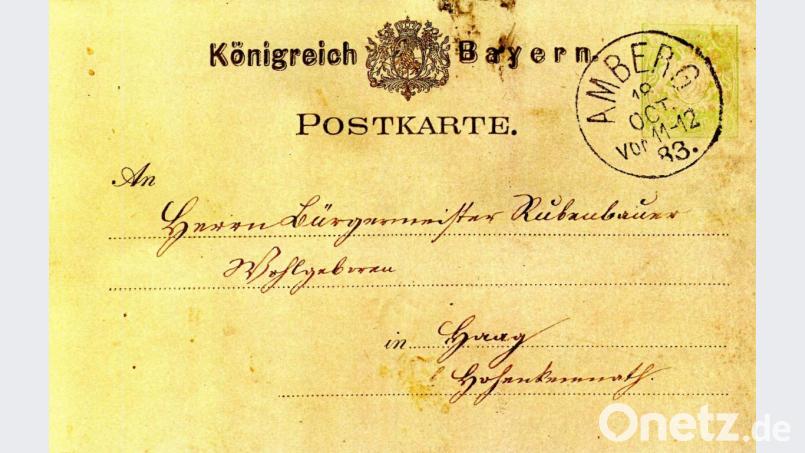 Königreich Bayern.
POSTKARTE.
AMBERG
18
OCT.
Vor 11-12
83.
An
Herrn Bürgermeister Rubenbauer
Wohlgeboren
in Haag
Hohenkemnath.
Onetz.de